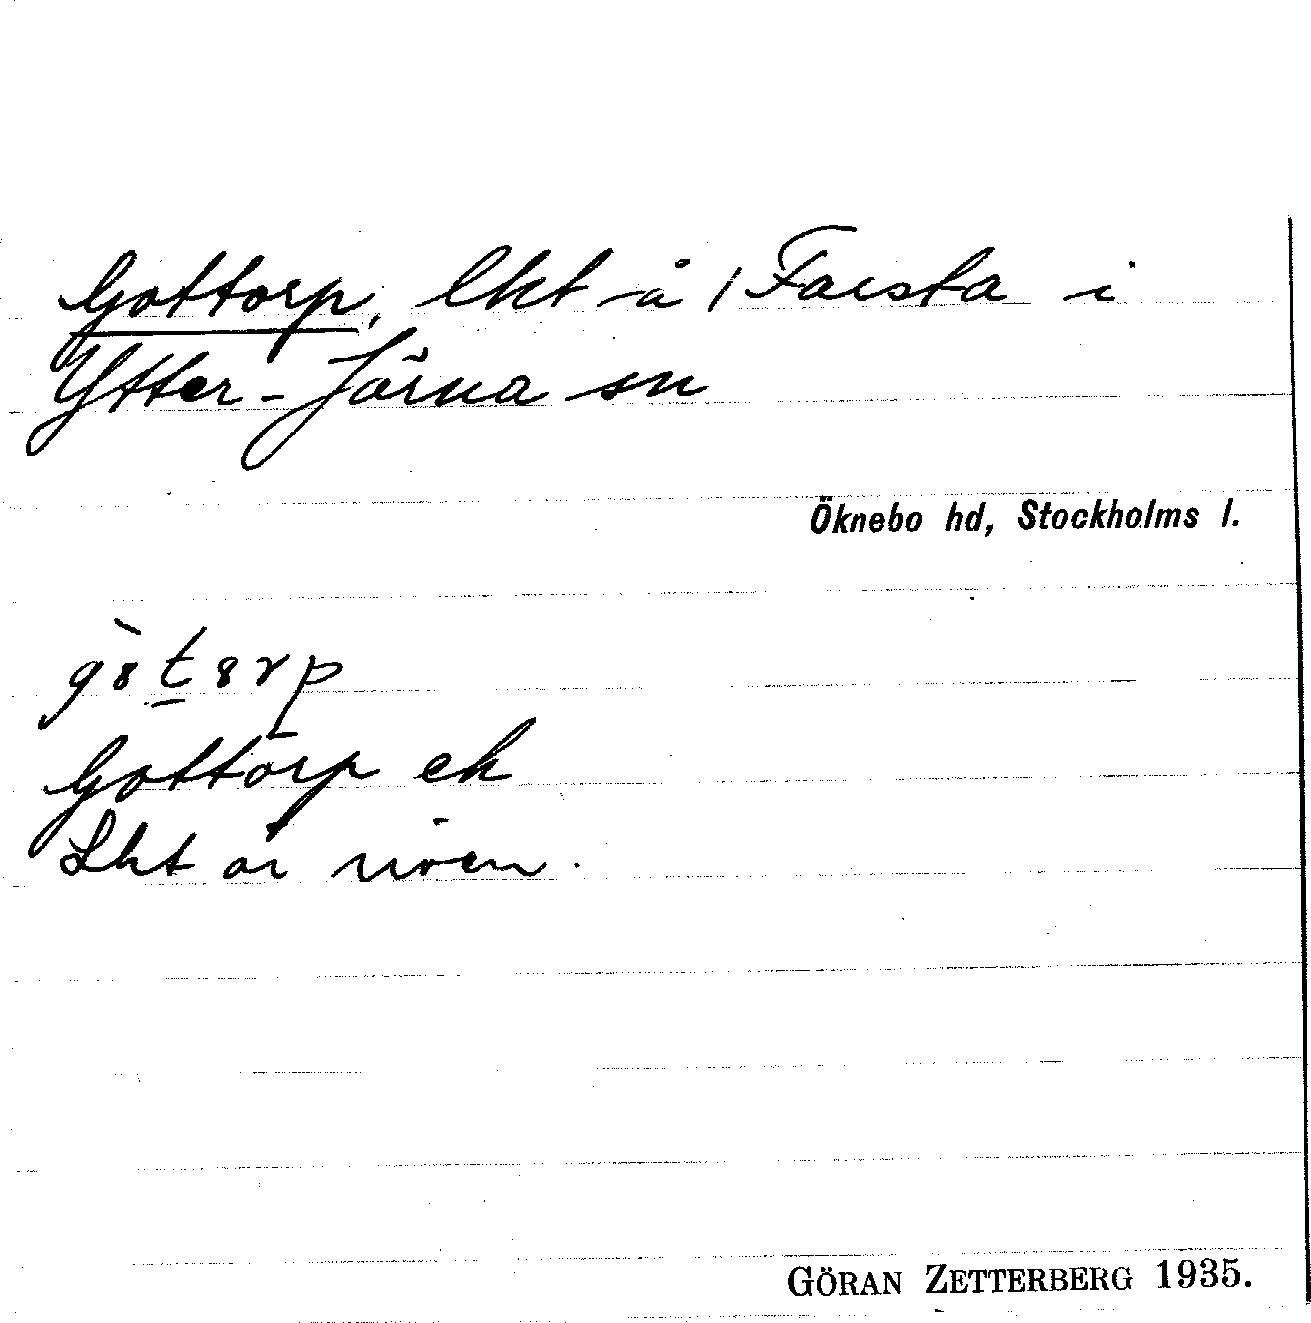 Gottorp, lht å 1 Farsta i
Ytter-Järna sn
Öknebo hd, Stockholms l.
Gottorp ek
Lht är riven.
GÖRAN ZETTERBERG 1935.